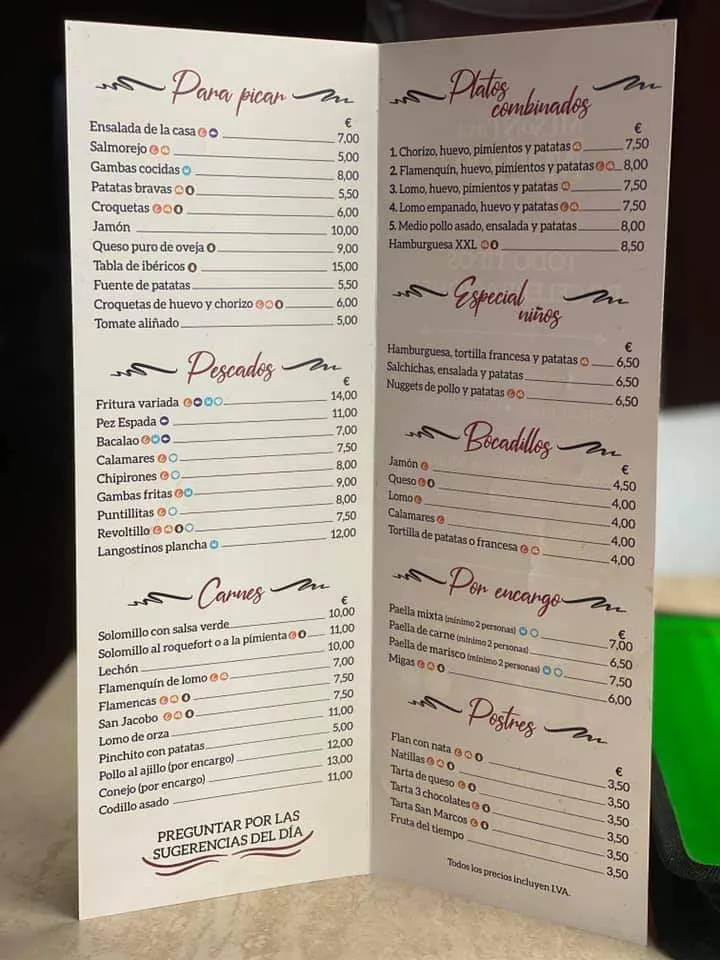 Para picar
€
Ensalada de la casa 7,00
Salmorejo 5,00
Gambas cocidas 8,00
Patatas bravas 5,50
Croquetas 6,00
Jamón 10,00
Queso puro de oveja 9,00
Tabla de ibéricos 15,00
Fuente de patatas 5,50
Croquetas de huevo y chorizo 6,00
Tomate aliñado 5,00
Pescados
€
Fritura variada 14,00
Pez Espada 11,00
Bacalao 7,00
Calamares 7,50
Chipirones 8,00
Gambas fritas 9,00
Puntillitas 8,00
Revoltillo 7,50
Langostinos plancha 12,00
Carnes
€
Solomillo con salsa verde 10,00
Solomillo al roquefort o a la pimienta 11,00
Lechón 10,00
Flamenquín de lomo 7,00
Flamencas 7,50
San Jacobo 7,50
Lomo de orza 11,00
Pinchito con patatas 5,00
Pollo al ajillo (por encargo) 12,00
Conejo (por encargo) 13,00
Codillo asado 11,00
PREGUNTAR POR LAS
SUGERENCIAS DEL DÍA
Platos
combinados
€
1. Chorizo, huevo, pimientos y patatas 7,50
2. Flamenquín, huevo, pimientos y patatas 8,00
3. Lomo, huevo, pimientos y patatas 7,50
4. Lomo empanado, huevo y patatas 7,50
5. Medio pollo asado, ensalada y patatas 8,00
Hamburguesa XXL 8,50
Especial
niños
€
Hamburguesa, tortilla francesa y patatas 6,50
Salchichas, ensalada y patatas 6,50
Nuggets de pollo y patatas 6,50
Bocadillos
€
Jamón 4,50
Queso 4,00
Lomo 4,00
Calamares 4,00
Tortilla de patatas o francesa 4,00
Por encargo
€
Paella mixta (mínimo 2 personas) 7,00
Paella de carne (mínimo 2 personas) 6,50
Paella de marisco (mínimo 2 personas) 7,50
Migas 6,00
Postres
€
Flan con nata 3,50
Natillas 3,50
Tarta de queso 3,50
Tarta 3 chocolates 3,50
Tarta San Marcos 3,50
Fruta del tiempo 3,50
Todos los precios incluyen I.V.A.